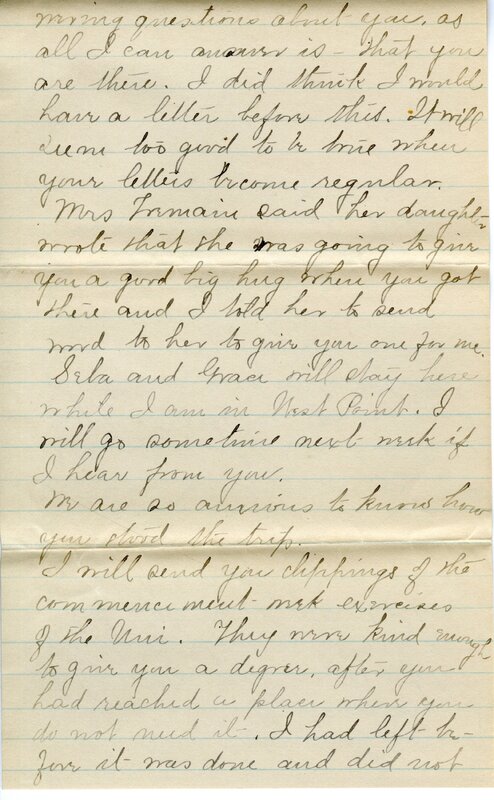 questions about you, as
all I can answer is - that you
are there. I did think I would
have a letter before this. It will
seem too good to be true when
your letters become regular.
Mrs Tremain said her daught-
wrote that she was going to give
you a good big hug when you got
there and I told her to send
word to her to give you one for me.
Selba and Grace will stay here
while I am in West Point. I
will go sometime next week if
I hear from you.
We are so anxious to know how
you stood the trip.
I will send you clippings of the
commencement week exercises
of the Uni. They were kind enough
to give you a degree, after you
had reached a place where you
do not need it. I had left be-
fore it was done and did not